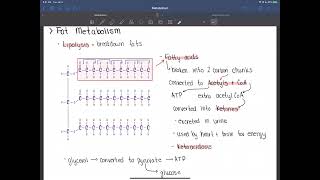 Metabolism
> Fat Metabolism
- Lipolysis - breakdown fats
- Fatty acids
- broken into 2 carbon chunks
converted to Acetyls + CoA
ATP extra acetyl CoA
converted into Ketones
- excreted in urine
- used by heart + brain for energy
- Ketoacidosis
glycerol → converted to pyruvate → ATP
glucose